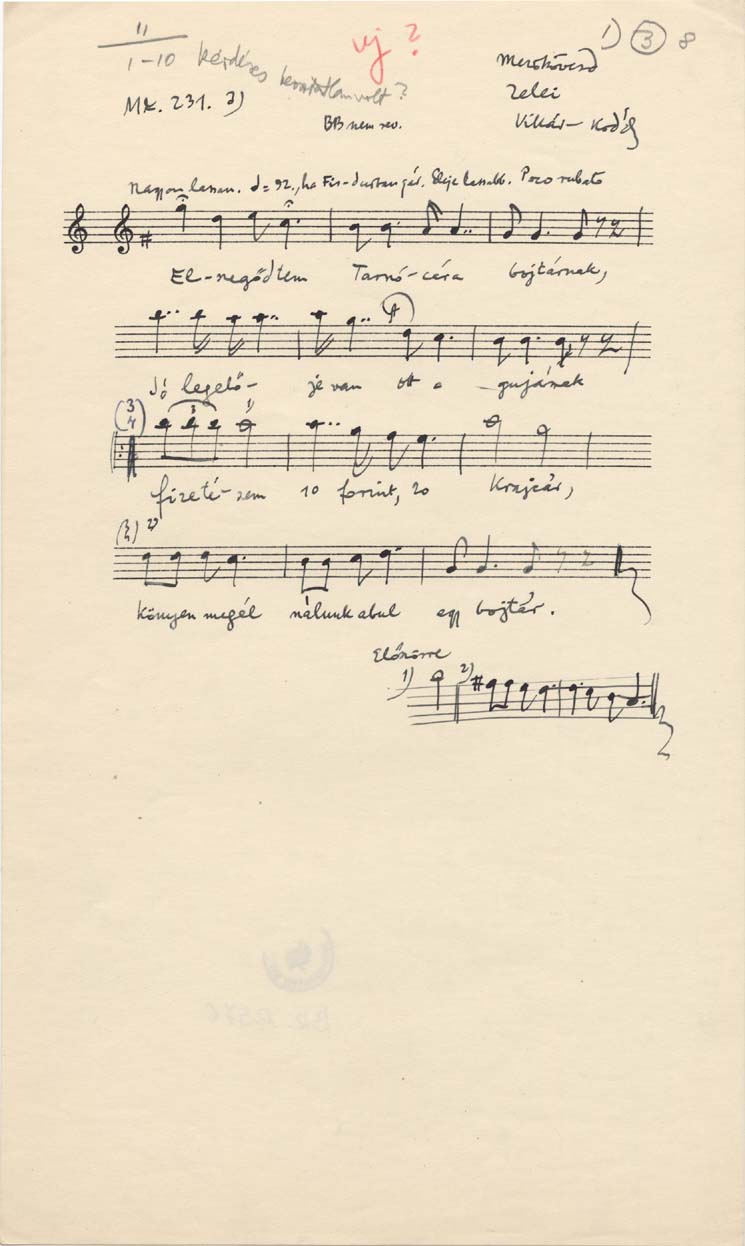 11
1-10 kérdéses
MH. 231. a)
új ?
BB nem rev.
1) 3 8
Mezőkövesd
Zelei
Vikár - Kodály
Nagyon lassan. = 92., ha Fis-durban jár. Eleje lassabb. Poco rubato
El-negődtem Tarnó-céra bojtárnak,
Jó legelő- je van ott a gujának
(3/4) 3 1)
fizeté-sem 10 forint, 20 Krajcár,
2)
könyen megél nálunk abul egy bojtár.
Előszörre
1) 2)